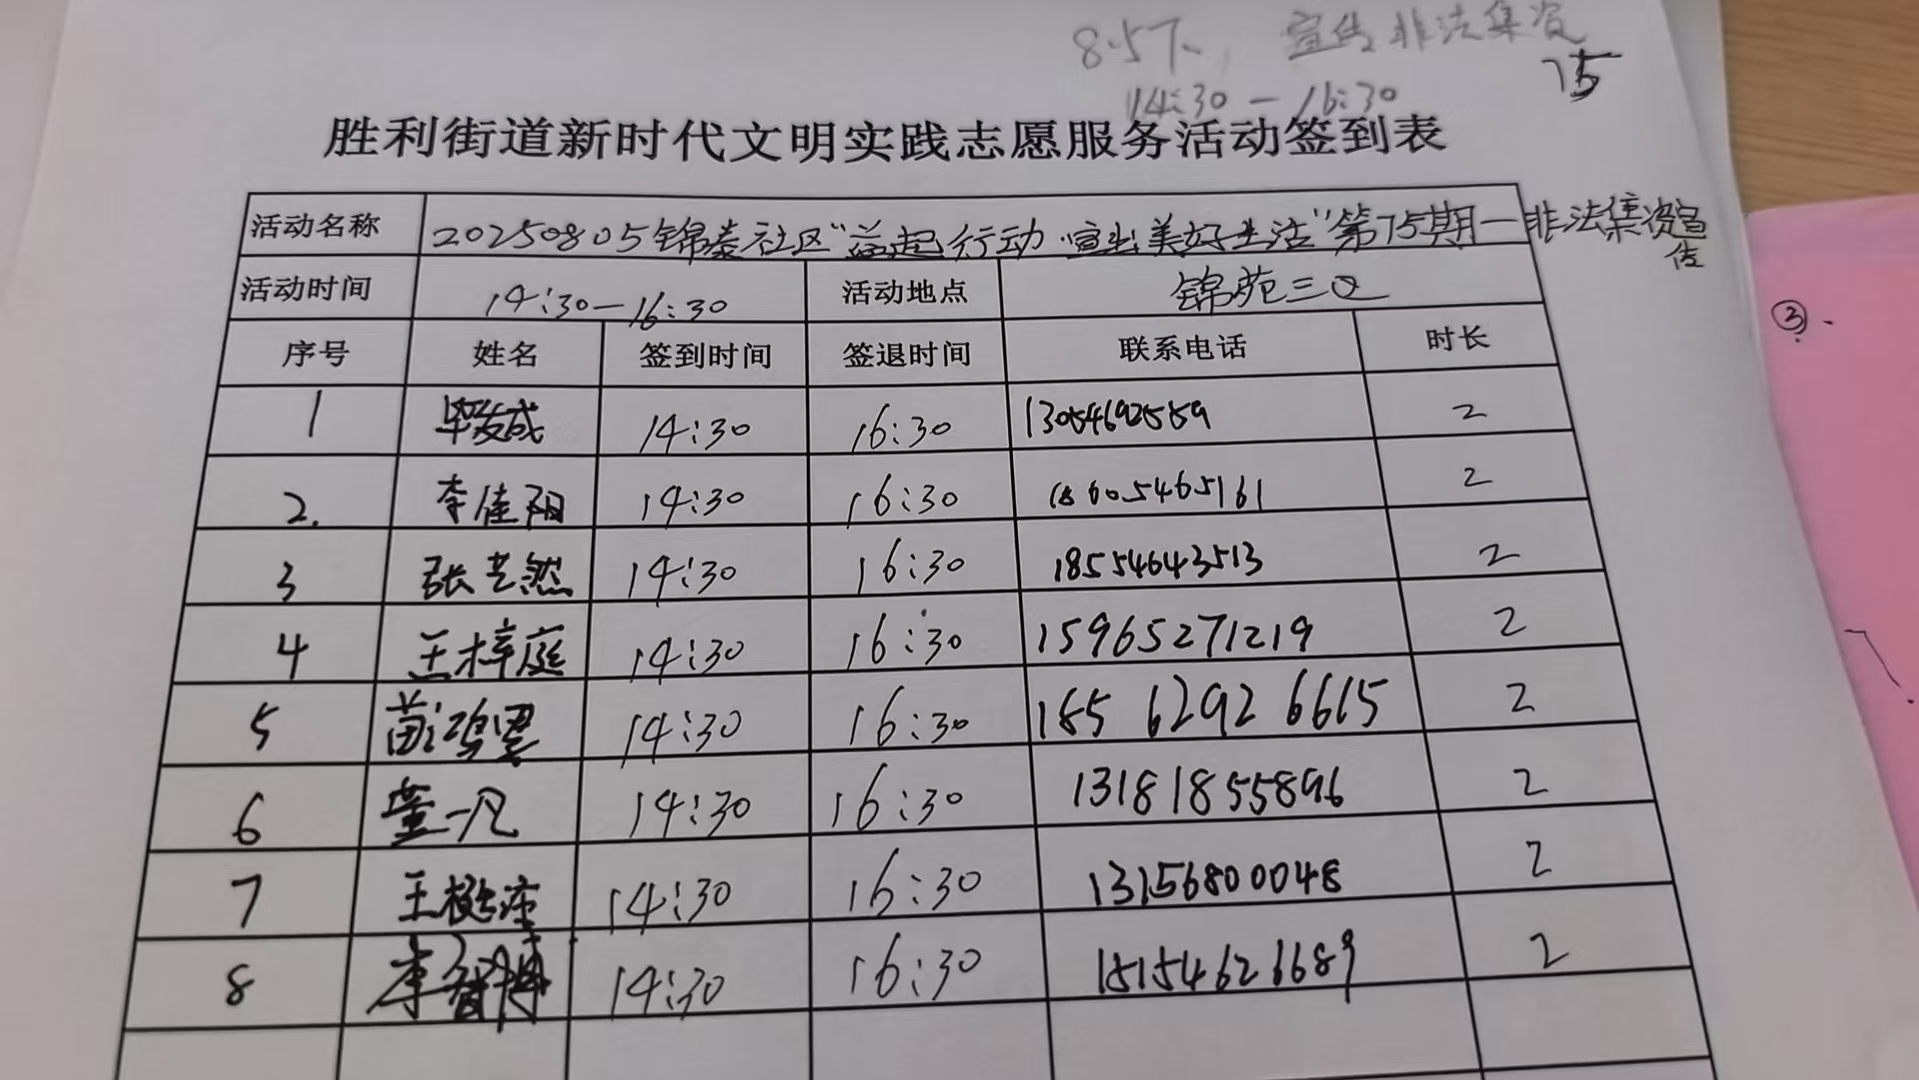 8.5下, 宣传非法集资
75
14:30-16:30
胜利街道新时代文明实践志愿服务活动签到表
活动名称 20250805锦泰社区"益起行动·宣出美好生活"第75期一非法集资宣传
活动时间 14:30-16:30 活动地点 锦苑三区
序号 姓名 签到时间 签退时间 联系电话 时长
1 毕发成 14:30 16:30 13054692559 2
2. 李佳阳 14:30 16:30 18605465161 2
3 张艺然 14:30 16:30 18554643513 2
4 王梓庭 14:30 16:30 15965271219 2
5 苗 14:30 16:30 185 6292 6615 2
6 董一凡 14:30 16:30 13181855896 2
7 王 14:30 16:30 13156800048 2
8 李智博 14:30 16:30 15154626689 2
③.